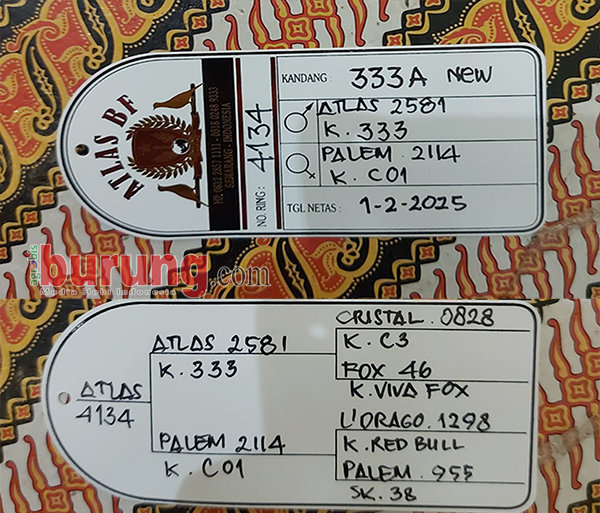 ATLAS BF
HP. 0812 2857 1111 - 0818 0248 9333
SEMARANG - INDONESIA
NO. RING : 4134
KANDANG : 333A NEW
♂ ATLAS 2581
K. 333
♀ PALEM. 2114
K. C01
TGL NETAS : 1-2-2025
agrobis
burung.com
Media Hobi Indonesia
ATLAS
4134
ATLAS 2581
K. 333
PALEM 2114
K. C01
CRISTAL. 0828
K. C3
FOX 46
K. VIVA FOX
L'DRAGO. 1298
K. RED BULL
PALEM. 955
SK. 38